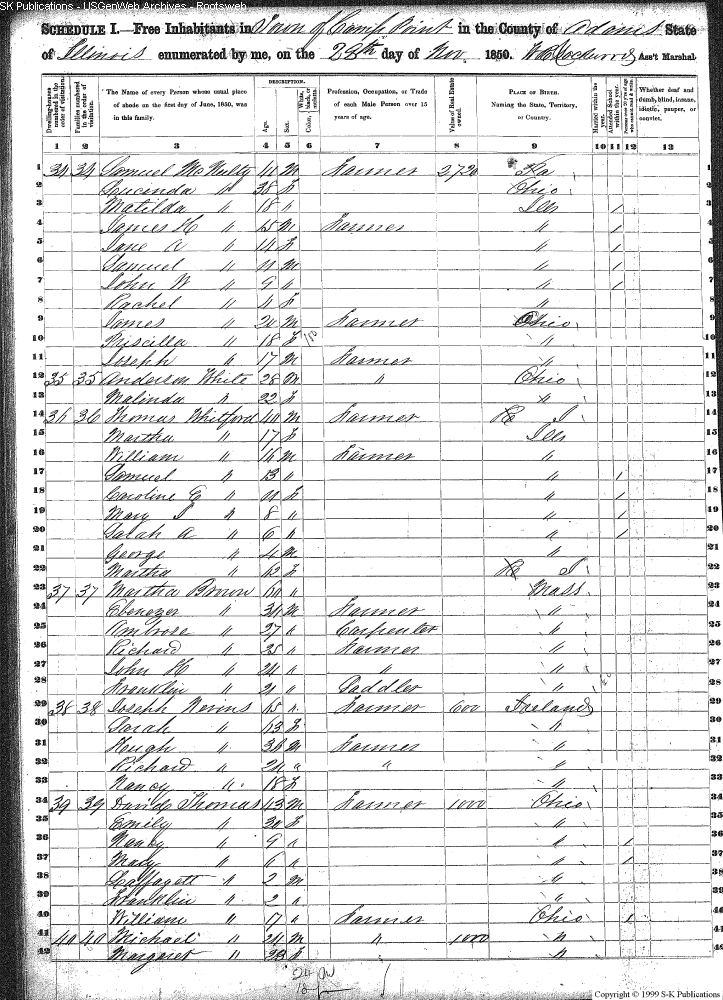 SK Publications - USGenWeb Archives - Rootsweb
SCHEDULE I.—Free Inhabitants in Town of Camp Point in the County of Adams State
of Illinois enumerated by me, on the 28th day of Nov. 1850. Ass't Marshal.
Dwelling-houses numbered in the order of visitation.
Families numbered in the order of visitation.
The Name of every Person whose usual place of abode on the first day of June, 1850, was in this family.
DESCRIPTION.
Age.
Sex.
Color, White, black, or mulatto.
Profession, Occupation, or Trade of each Male Person over 15 years of age.
Value of Real Estate owned.
PLACE OF BIRTH. Naming the State, Territory, or Country.
Married within the year.
Attended School within the year.
Persons over 20 y'rs of age who cannot read & write.
Whether deaf and dumb, blind, insane, idiotic, pauper, or convict.
1 2 3 4 5 6 7 8 9 10 11 12 13
1 34 34 Samuel McNulty M Farmer 2720 1
2 Lucinda " 38 F Ohio 2
3 Matilda " 18 " Ills / 3
4 James H " 15 M Farmer " / 4
5 Jane A " 14 F " / 5
6 Samuel " 11 M " / 6
7 John W " 9 " " / 7
8 Rachel " 4 F " 8
9 James " 20 M Farmer Ohio 9
10 Priscilla " 18 F " 10
11 Joseph " 17 M Farmer " 11
12 35 35 Anderson White 28 M " Ohio 12
13 Malinda " 22 F " 13
14 36 36 Thomas Whitford M Farmer R I 14
15 Martha " 17 F Ills 15
16 William " 16 M Farmer " 16
17 Samuel " 13 " " / 17
18 Caroline E " 11 F " / 18
19 Mary " 8 " " / 19
20 Sarah A " 6 " " / 20
21 George " 4 M " 21
22 Martha " F R I 22
23 37 37 Martha Brown " Mass 23
24 Ebenezer " 34 M Farmer " 24
25 Ambrose " 27 " Carpenter " 25
26 Richard " 25 " Farmer " 26
27 John H " 24 " " " 27
28 Franklin " 21 " Paddler " 28
29 38 38 Joseph " Farmer 600 Ireland 29
30 Sarah " 63 F " 30
31 Hugh " M Farmer " 31
32 Richard " 24 " " " 32
33 Nancy " 18 F " 33
34 39 39 David Thomas 43 M Farmer 1000 Ohio 34
35 Emily " 30 F " 35
36 Nancy " 9 " " / 36
37 Mary " 6 " " / 37
38 Laffayett " 2 M " 38
39 Franklin " 2 " " 39
40 William " 17 " Farmer Ohio / 40
41 40 40 Michael " 24 M " 1000 " 41
42 Margaret " 23 F " 42
Copyright © 1999 S-K Publications